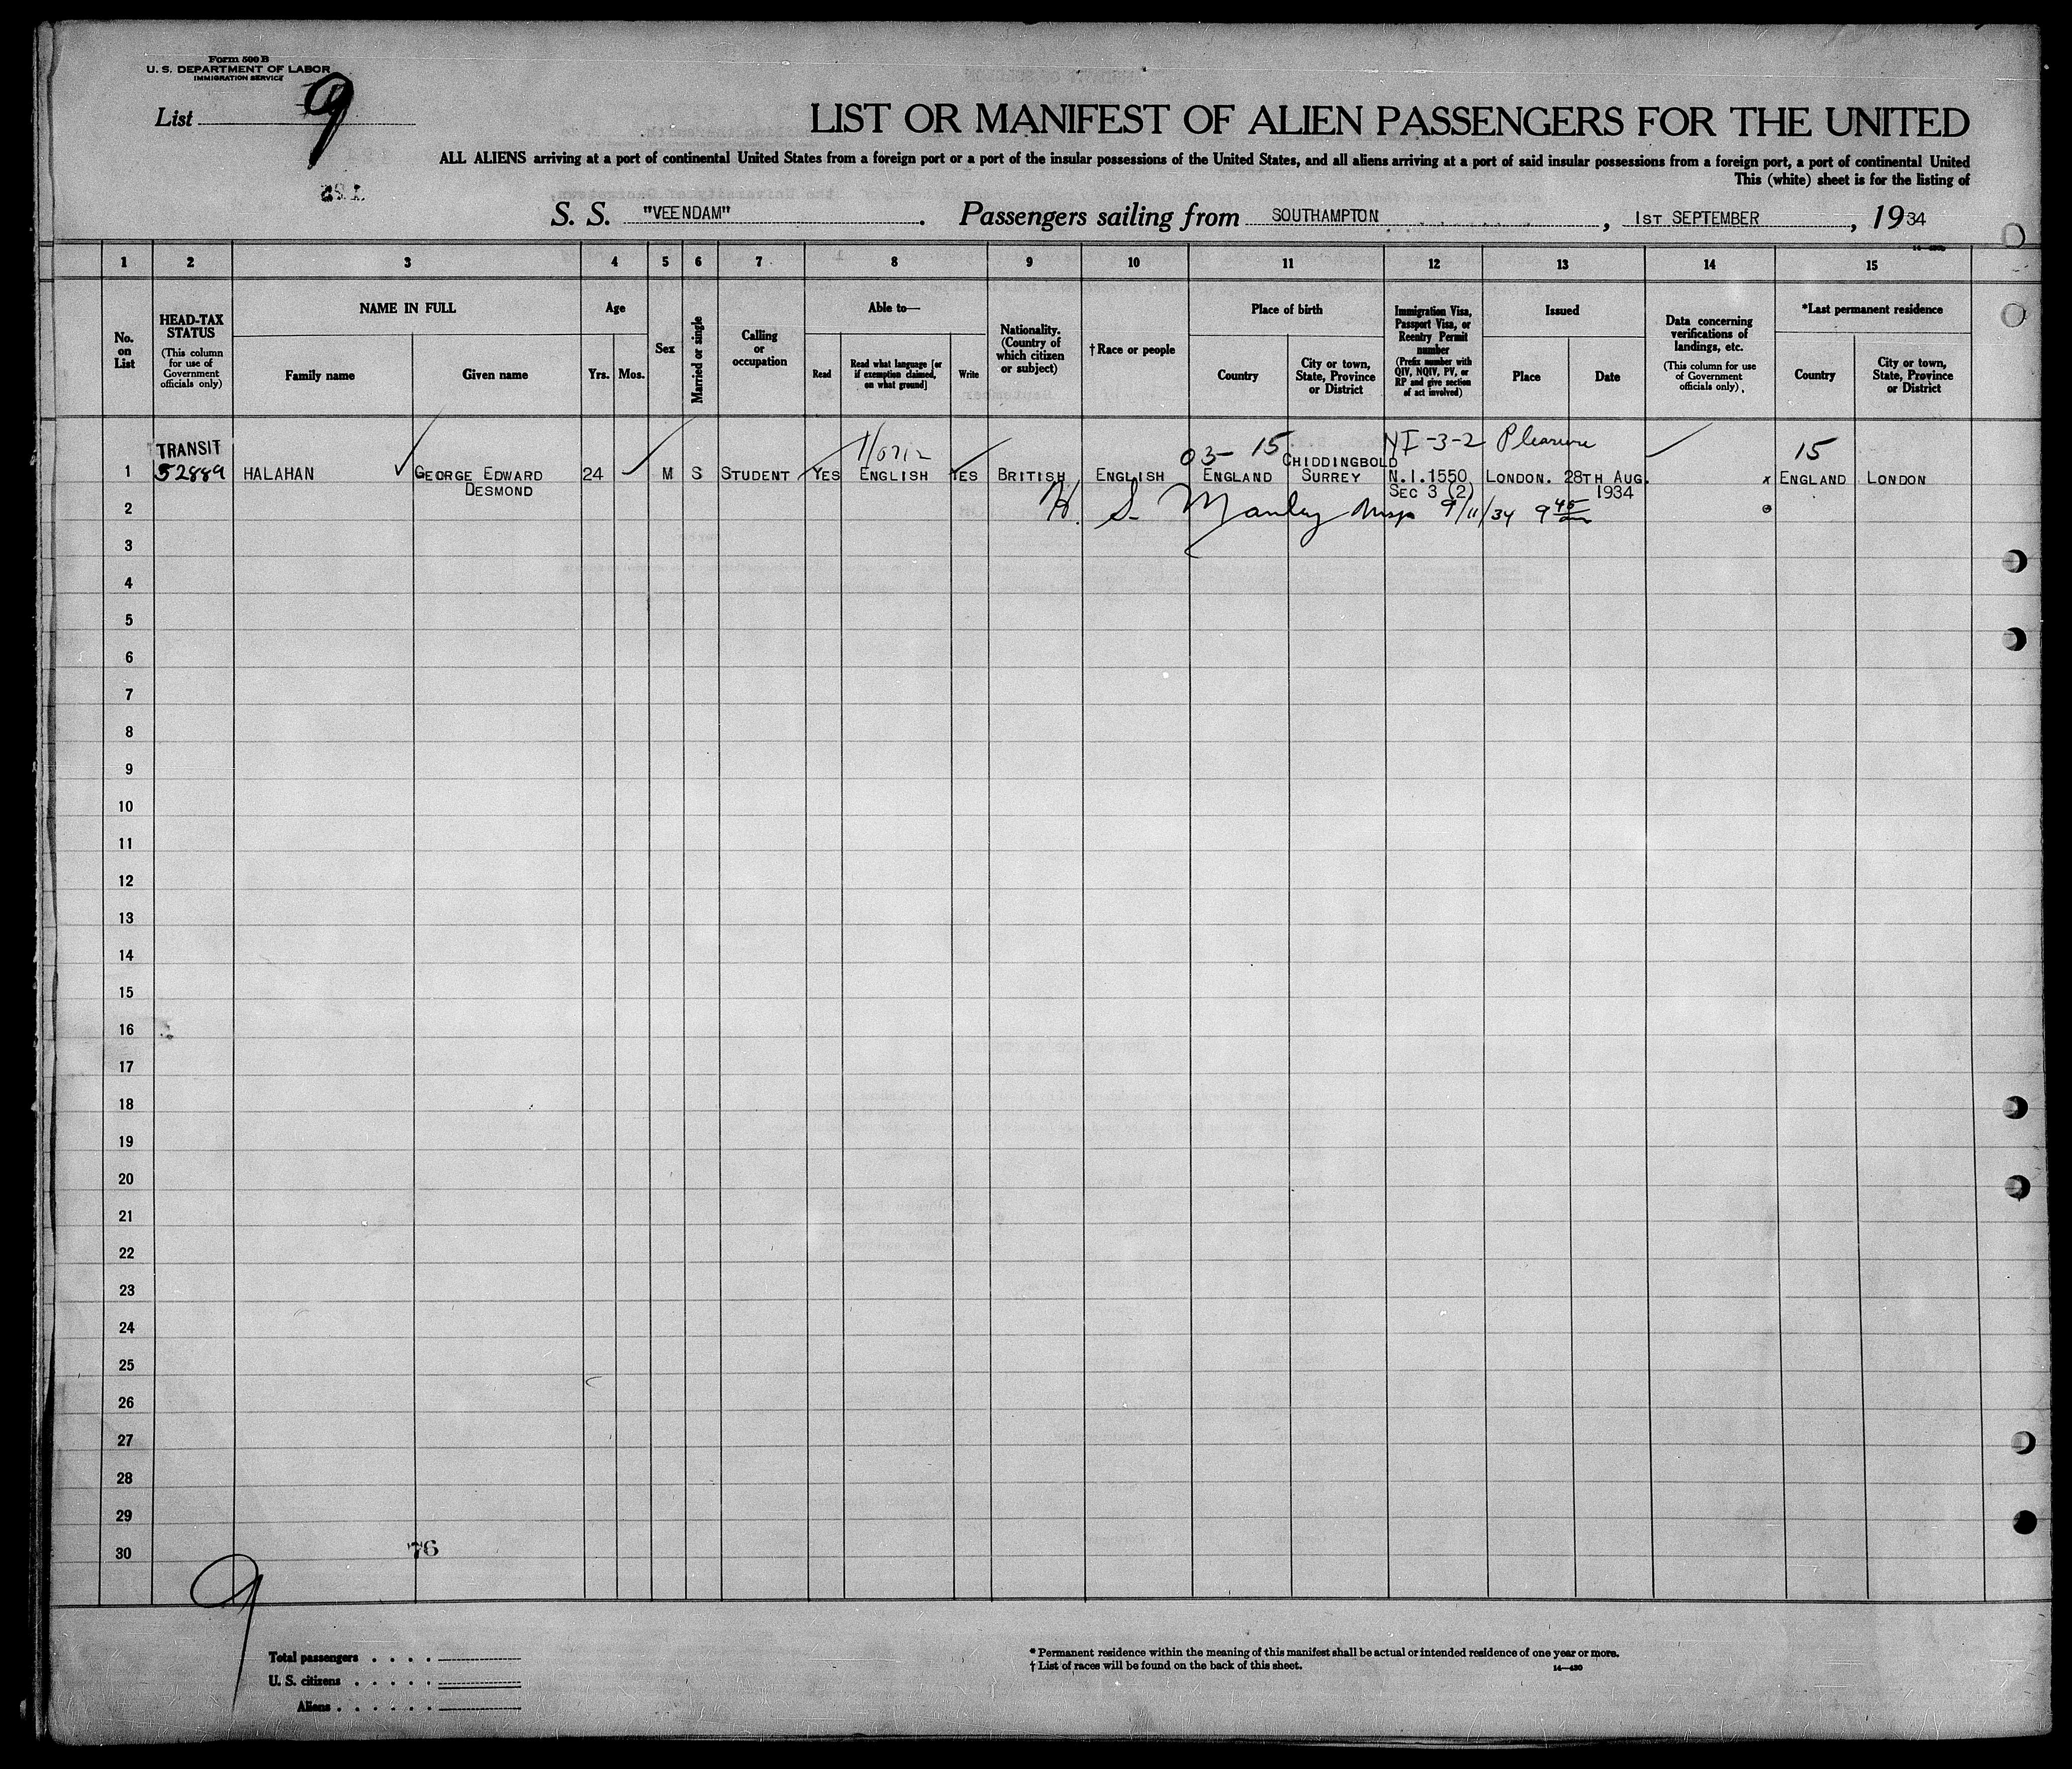 Form 500 B
U. S. DEPARTMENT OF LABOR
IMMIGRATION SERVICE
List 9
LIST OR MANIFEST OF ALIEN PASSENGERS FOR THE UNITED
ALL ALIENS arriving at a port of continental United States from a foreign port or a port of the insular possessions of the United States, and all aliens arriving at a port of said insular possessions from a foreign port, a port of continental United
This (white) sheet is for the listing of
S. S. "VEENDAM". Passengers sailing from SOUTHAMPTON, 1ST SEPTEMBER, 1934
1 2 3 4 5 6 7 8 9 10 11 12 13 14 15
No. on List
HEAD-TAX STATUS
(This column for use of Government officials only)
NAME IN FULL
Family name
Given name
Age
Yrs. Mos.
Sex
Married or single
Calling or occupation
Able to—
Read
Read what language [or if exemption claimed, on what ground]
Write
Nationality. (Country of which citizen or subject)
†Race or people
Place of birth
Country
City or town, State, Province or District
Immigration Visa, Passport Visa, or Reentry Permit number
(Prefix number with QIV, NQIV, PV, or RP and give section of act involved)
Issued
Place
Date
Data concerning verifications of landings, etc.
(This column for use of Government officials only)
*Last permanent residence
Country
City or town, State, Province or District
TRANSIT 03- 15 NI-3-2 Pleasure 15
CHIDDINGBOLD
1 52889 HALAHAN GEORGE EDWARD 24 M S STUDENT YES ENGLISH YES BRITISH ENGLISH ENGLAND SURREY N.I.1550 LONDON. 28TH AUG. x ENGLAND LONDON
DESMOND SEC 3 (2) 1934
2 H. S. Manley Insp 9/11/34 9 45 am
3
4
5
6
7
8
9
10
11
12
13
14
15
16
17
18
19
20
21
22
23
24
25
26
27
28
29
30
76
9
Total passengers . . . .
U. S. citizens . . . . .
Aliens . . . . . .
* Permanent residence within the meaning of this manifest shall be actual or intended residence of one year or more.
† List of races will be found on the back of this sheet. 14—430